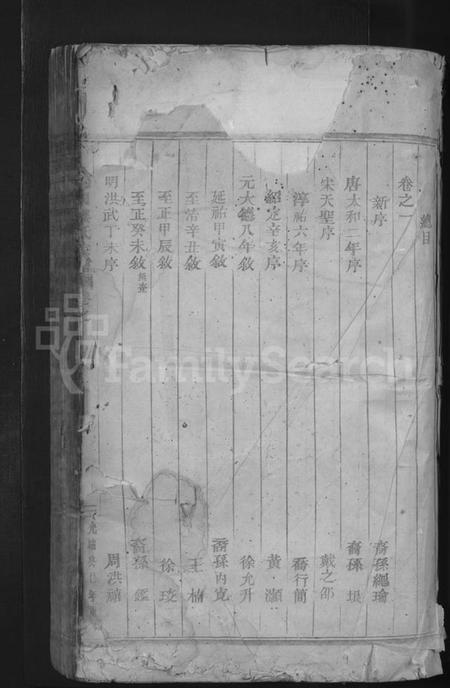 總目
卷之一
新序 裔孫繩瑜
唐太和二年序 裔孫垠
宋天聖序 戴之邵
淳祐六年序 喬行簡
紹定辛亥序 黃灝
元大德八年敘 徐允升
延祐甲寅敘 裔孫內克
至治辛丑敘 王楠
至正甲辰敘 徐琰
至正癸未敘 裔孫鑑
明洪武丁未序 周洪
光緒
FamilySearch